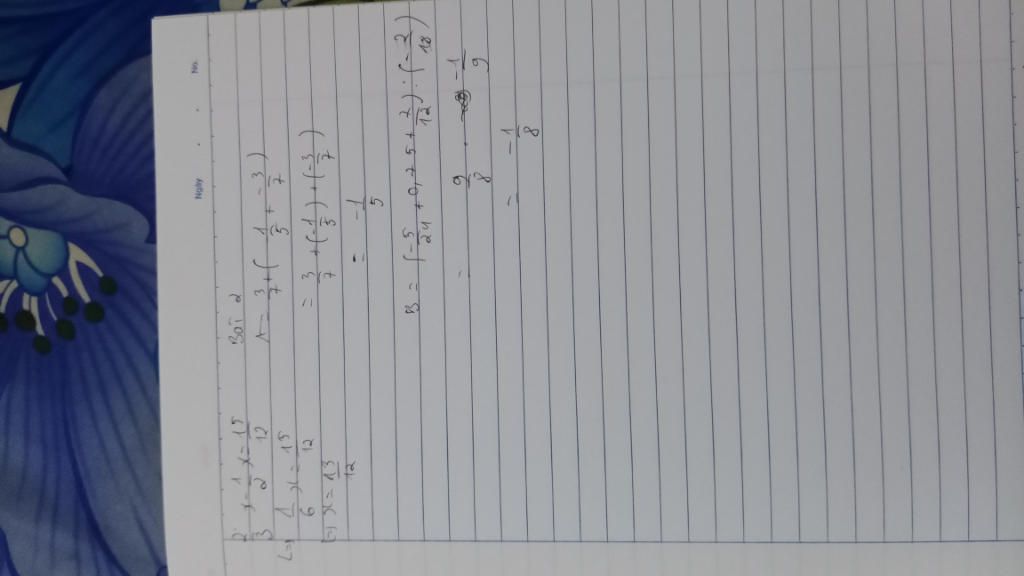 Ngày . . No.
2/3 x - 1/2 x = 15/12
<=> 1/6 x = 15/12
<=> x = 13/12
Bài 2
A = 3/7 + (-1/5 + -3/7)
= 3/7 + (-1/5) + (-3/7)
= -1/5
B = (-5/24 + 0,25 + 7/12) : (-2/18)
= 9/8 . -1/9
= -1/8